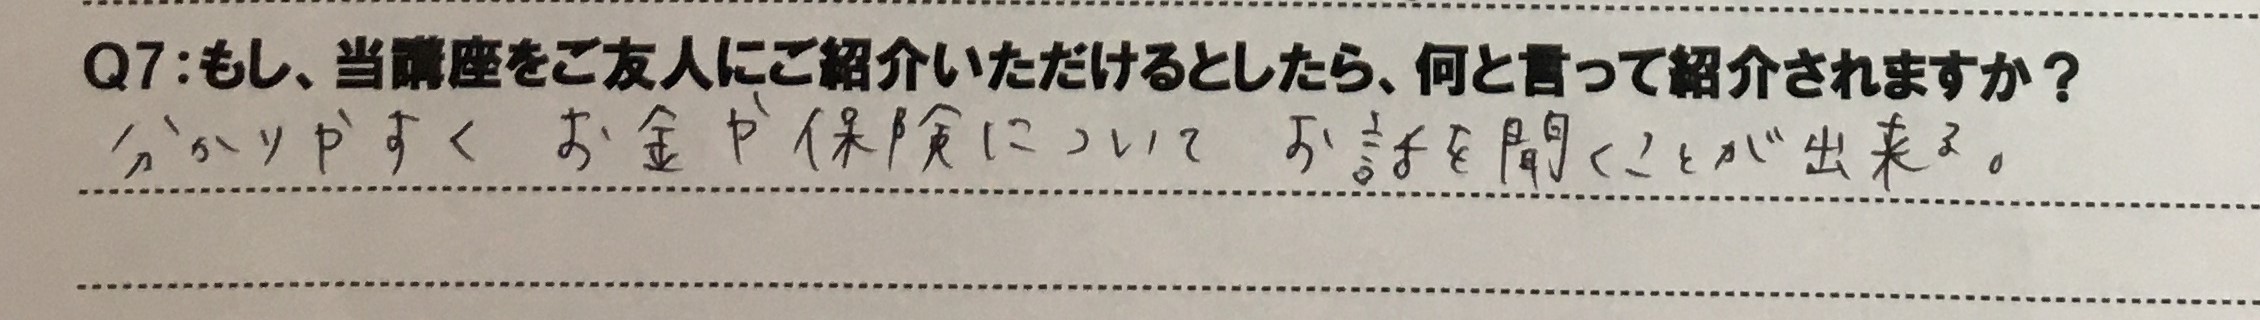 Q7:もし、当講座をご友人にご紹介いただけるとしたら、何と言って紹介されますか?
分かりやすく お金や保険について お話を聞くことが出来る。